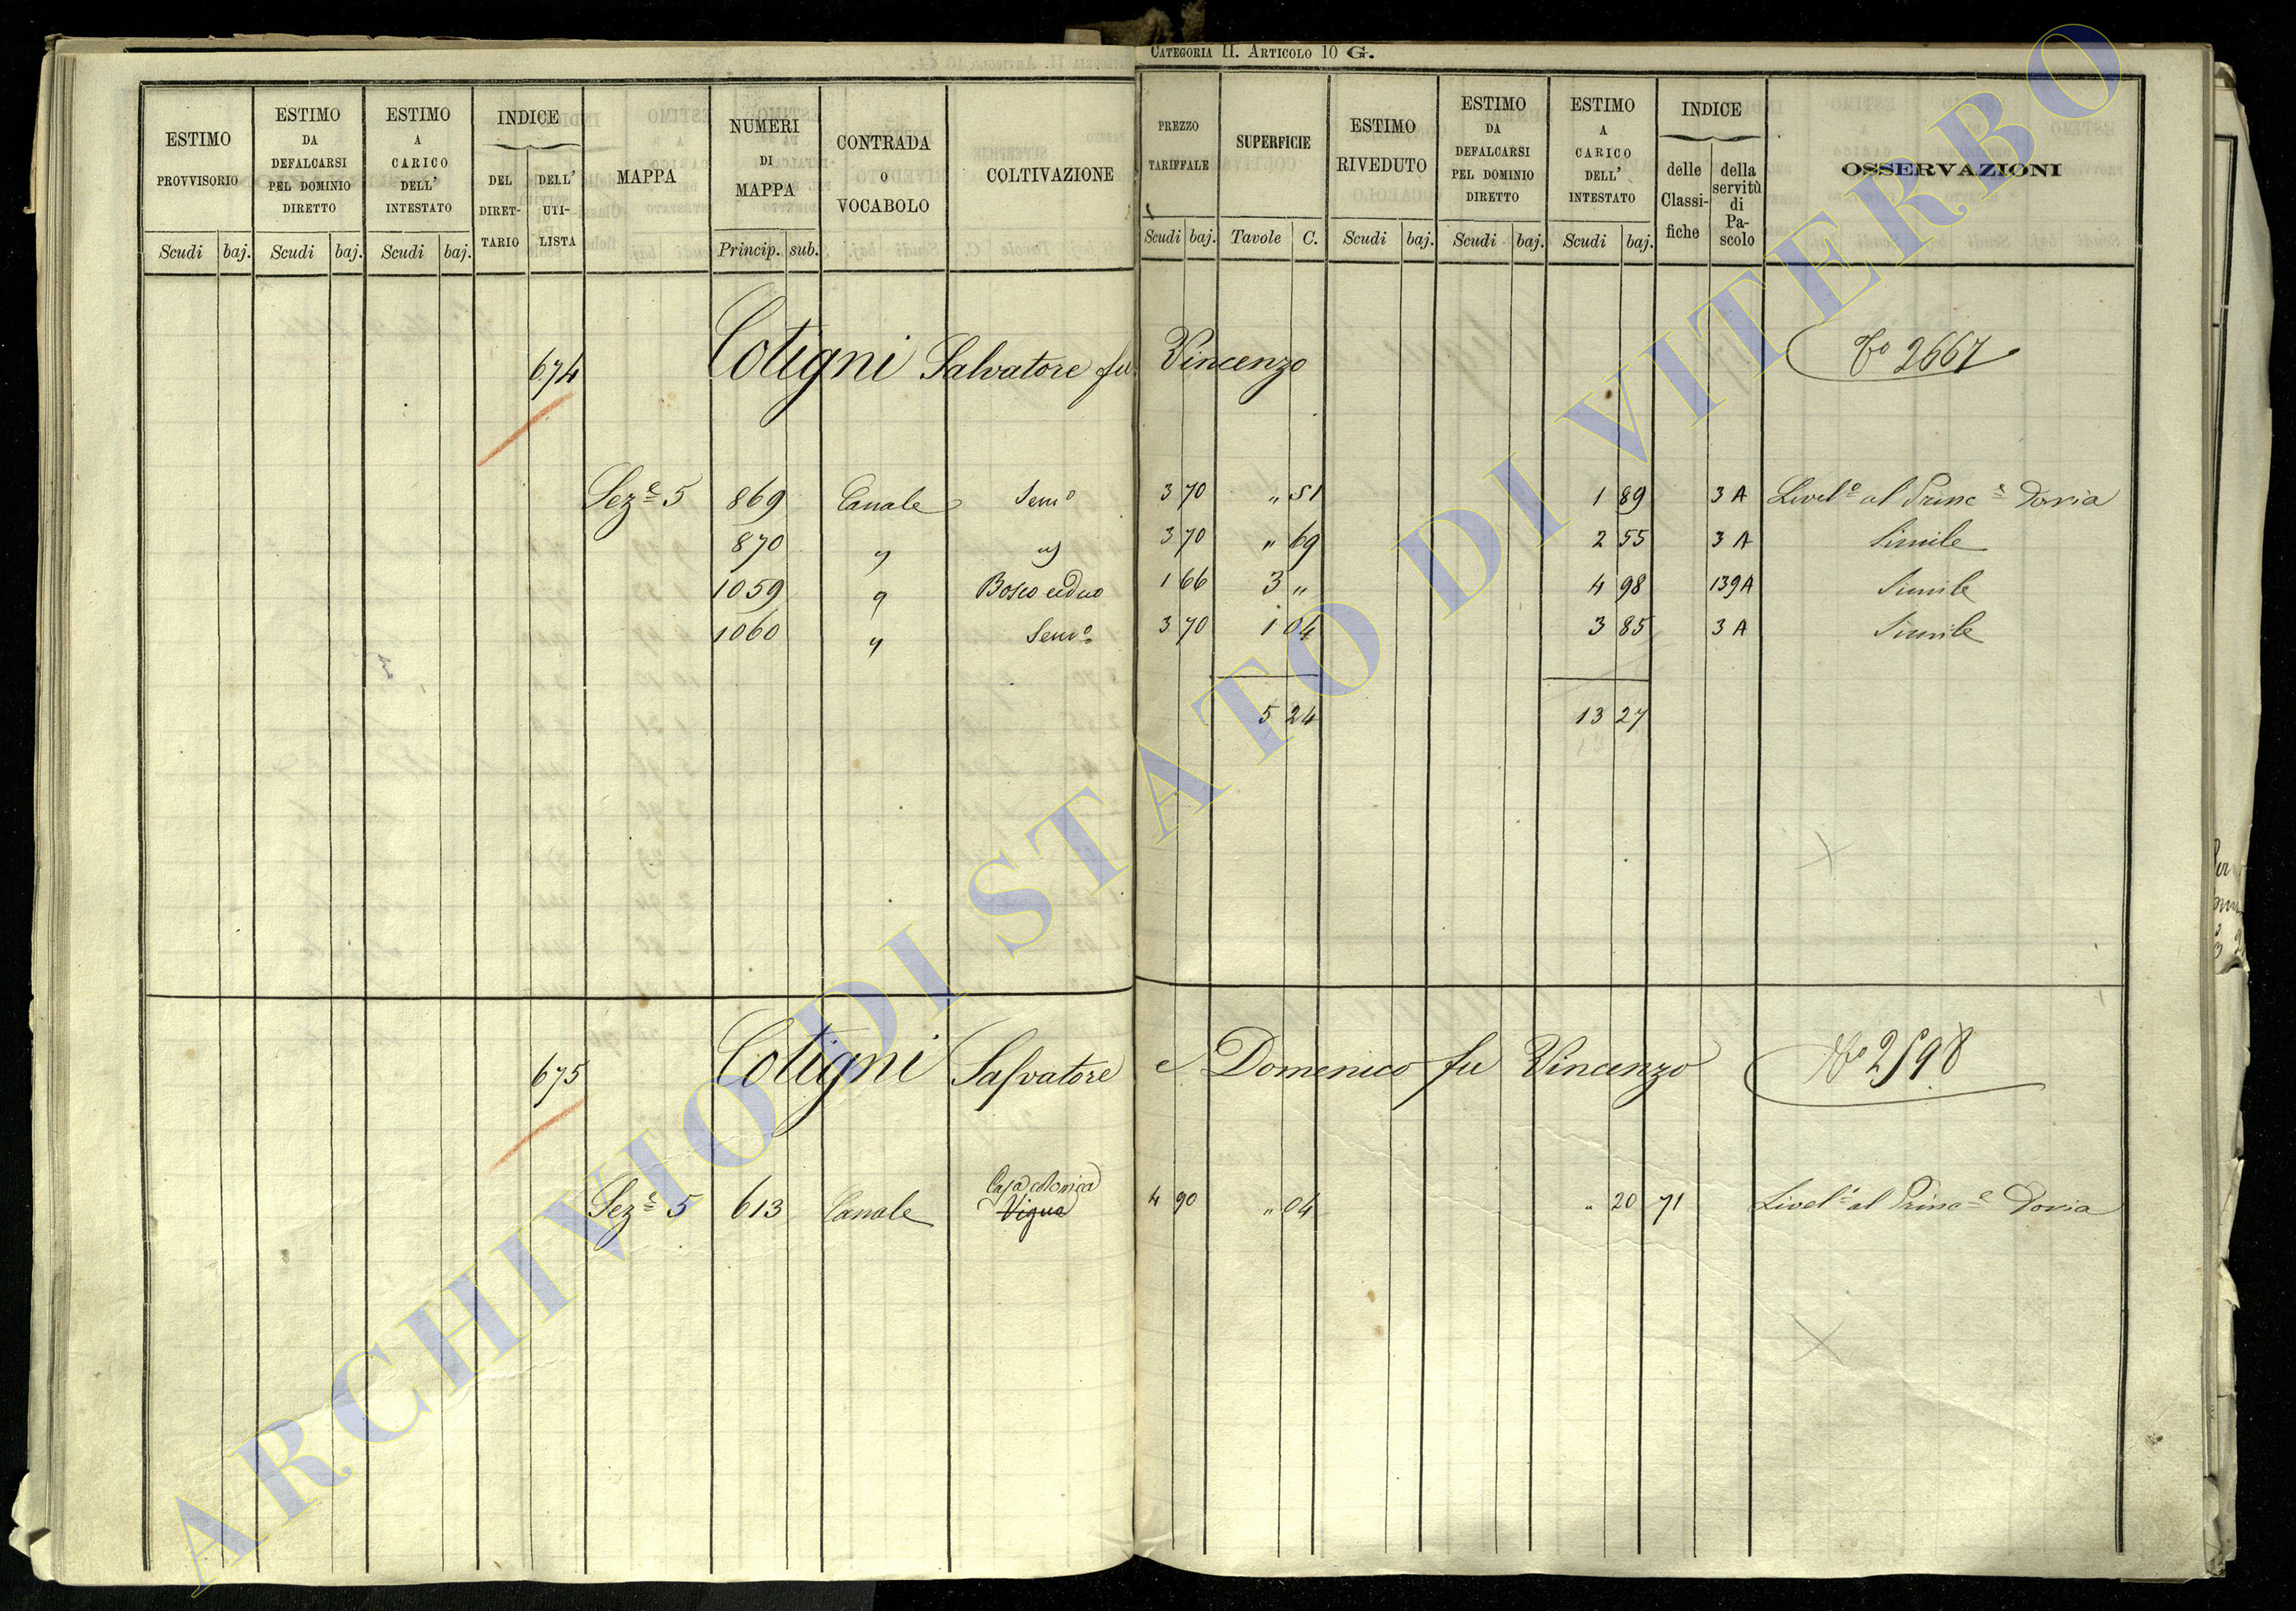 CATEGORIA II. ARTICOLO 10 G.
ESTIMO PROVVISORIO Scudi baj.
ESTIMO DA DEFALCARSI PEL DOMINIO DIRETTO Scudi baj.
ESTIMO A CARICO DELL' INTESTATO Scudi baj.
INDICE DEL DIRET- TARIO DELL' UTI- LISTA
MAPPA
NUMERI DI MAPPA Princip. sub.
CONTRADA O VOCABOLO
COLTIVAZIONE
PREZZO TARIFFALE Scudi baj.
SUPERFICIE Tavole C.
ESTIMO RIVEDUTO Scudi baj.
ESTIMO DA DEFALCARSI PEL DOMINIO DIRETTO Scudi baj.
ESTIMO A CARICO DELL' INTESTATO Scudi baj.
INDICE delle Classi- fiche della servitù di Pa- scolo
OSSERVAZIONI
674 Cotigni Salvatore fu Vincenzo No 2667
Seze 5 869 Canale Semo 3 70 " 51 1 89 3 A Livelo al Prince Doria
870 " " 3 70 " 69 2 55 3 A Simile
1059 " Bosco ceduo 1 66 3 " 4 98 139 A Simile
1060 " Semo 3 70 1 04 3 85 3 A Simile
5 24 13 27
675 Cotigni Salvatore e Domenico fu Vincenzo No 2598
Casa colonica
Seze 5 613 Canale Vigna 4 90 " 04 " 20 71 Livelo al Prince Doria
ARCHIVIO DI STATO DI VITERBO